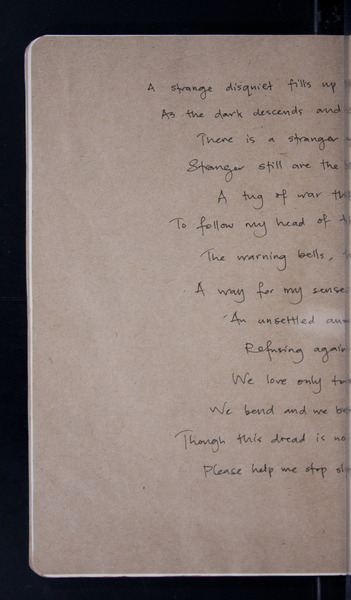 A strange disquiet fills up
As the dark descends and
There is a stranger
Stranger still are the
A tug of war
To follow my head of
The warning bells,
A way for my sense
An unsettled
Refusing again
We love only
We bend and we
Though this dread is no
Please help me stop